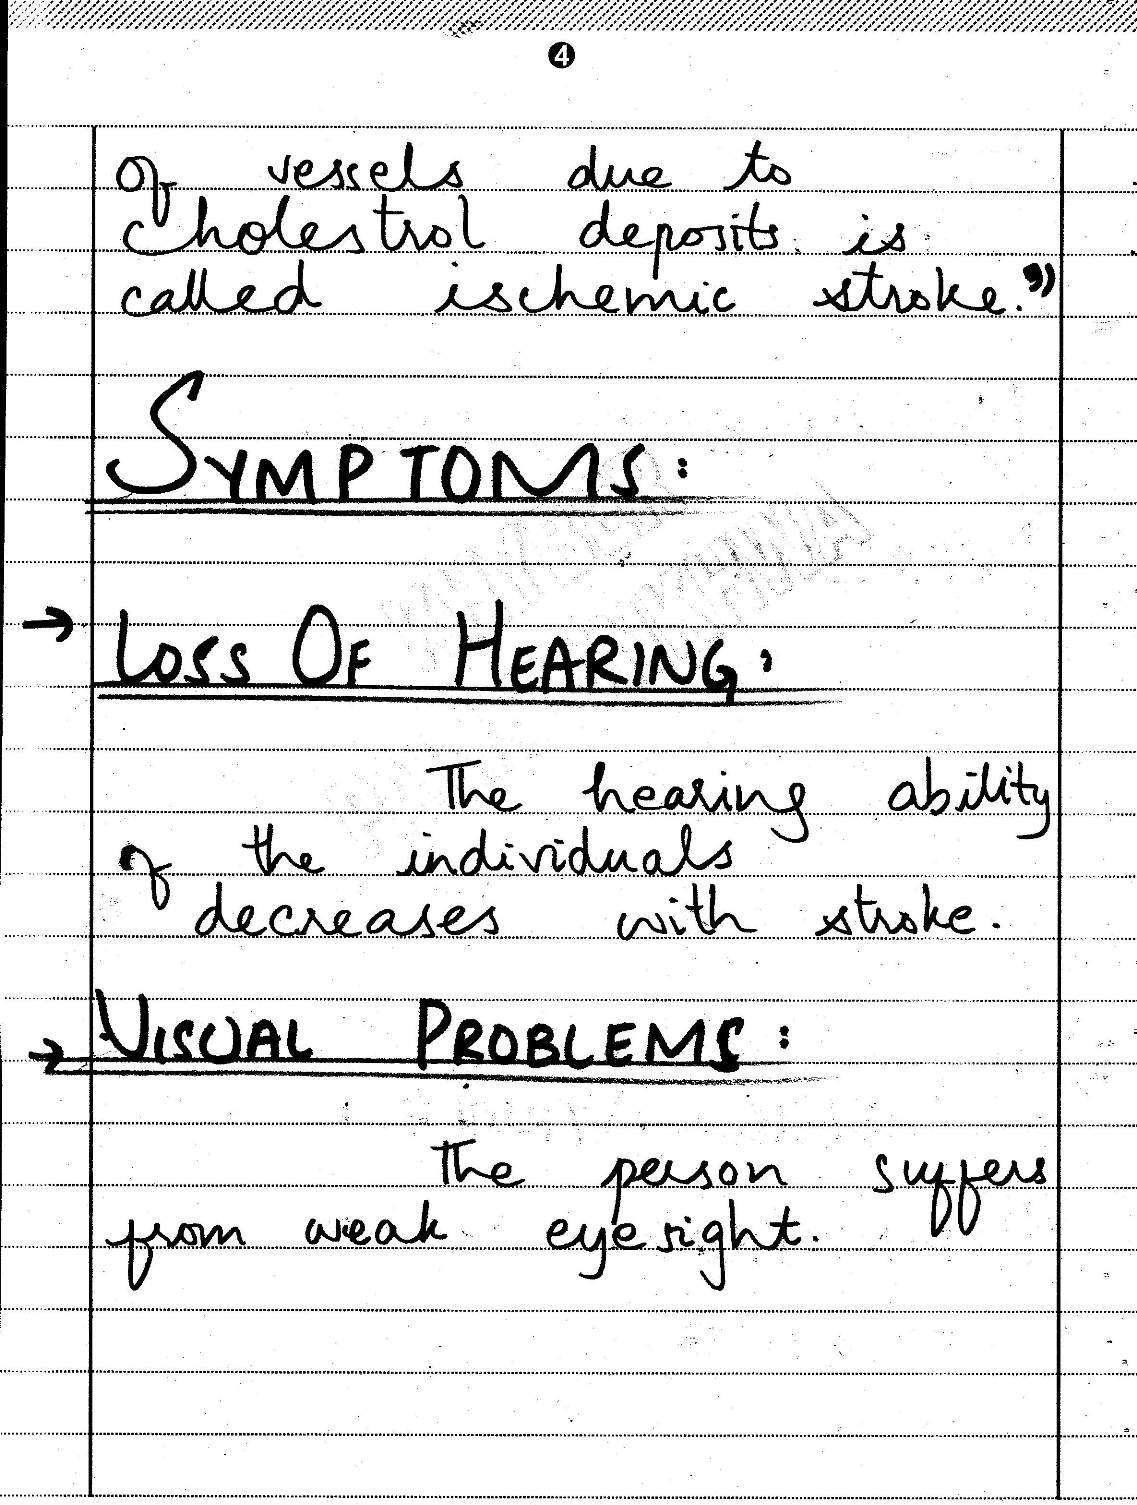 4
of vessels due to
cholestrol deposits is
called ischemic stroke.”
SYMPTOMS:
→ LOSS OF HEARING:
The hearing ability
of the individuals
decreases with stroke.
→ VISUAL PROBLEMS:
The person suffers
from weak eyesight.